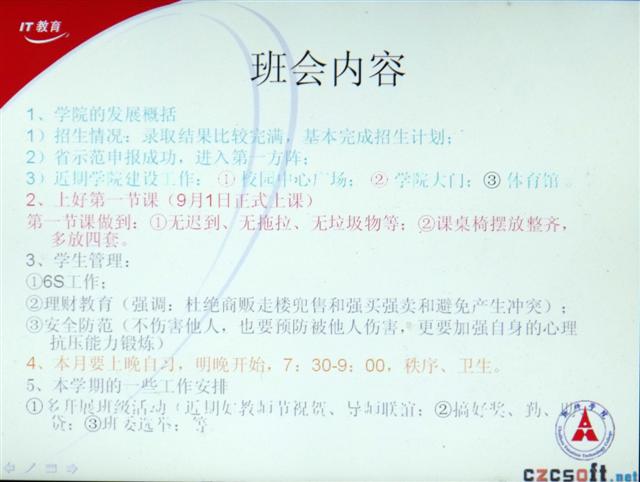 IT教育
班会内容
1、学院的发展概括
1）招生情况：录取结果比较完满，基本完成招生计划；
2）省示范申报成功，进入第一方阵；
3）近期学院建设工作：①校园中心广场；②学院大门；③体育馆。
2、上好第一节课（9月1日正式上课）
第一节课做到：①无迟到、无拖拉、无垃圾物等；②课桌椅摆放整齐，
多放四套。
3、学生管理：
①6S工作；
②理财教育（强调：杜绝商贩走楼兜售和强买强卖和避免产生冲突）；
③安全防范（不伤害他人，也要预防被他人伤害，更要加强自身的心理
抗压能力锻炼）
4、本月要上晚自习，明晚开始，7：30-9：00，秩序、卫生。
5、本学期的一些工作安排
①多开展班级活动（近期如教师节祝贺、导师联谊；②搞好奖、勤、助
贷；③班委选举；等
czcsoft.net